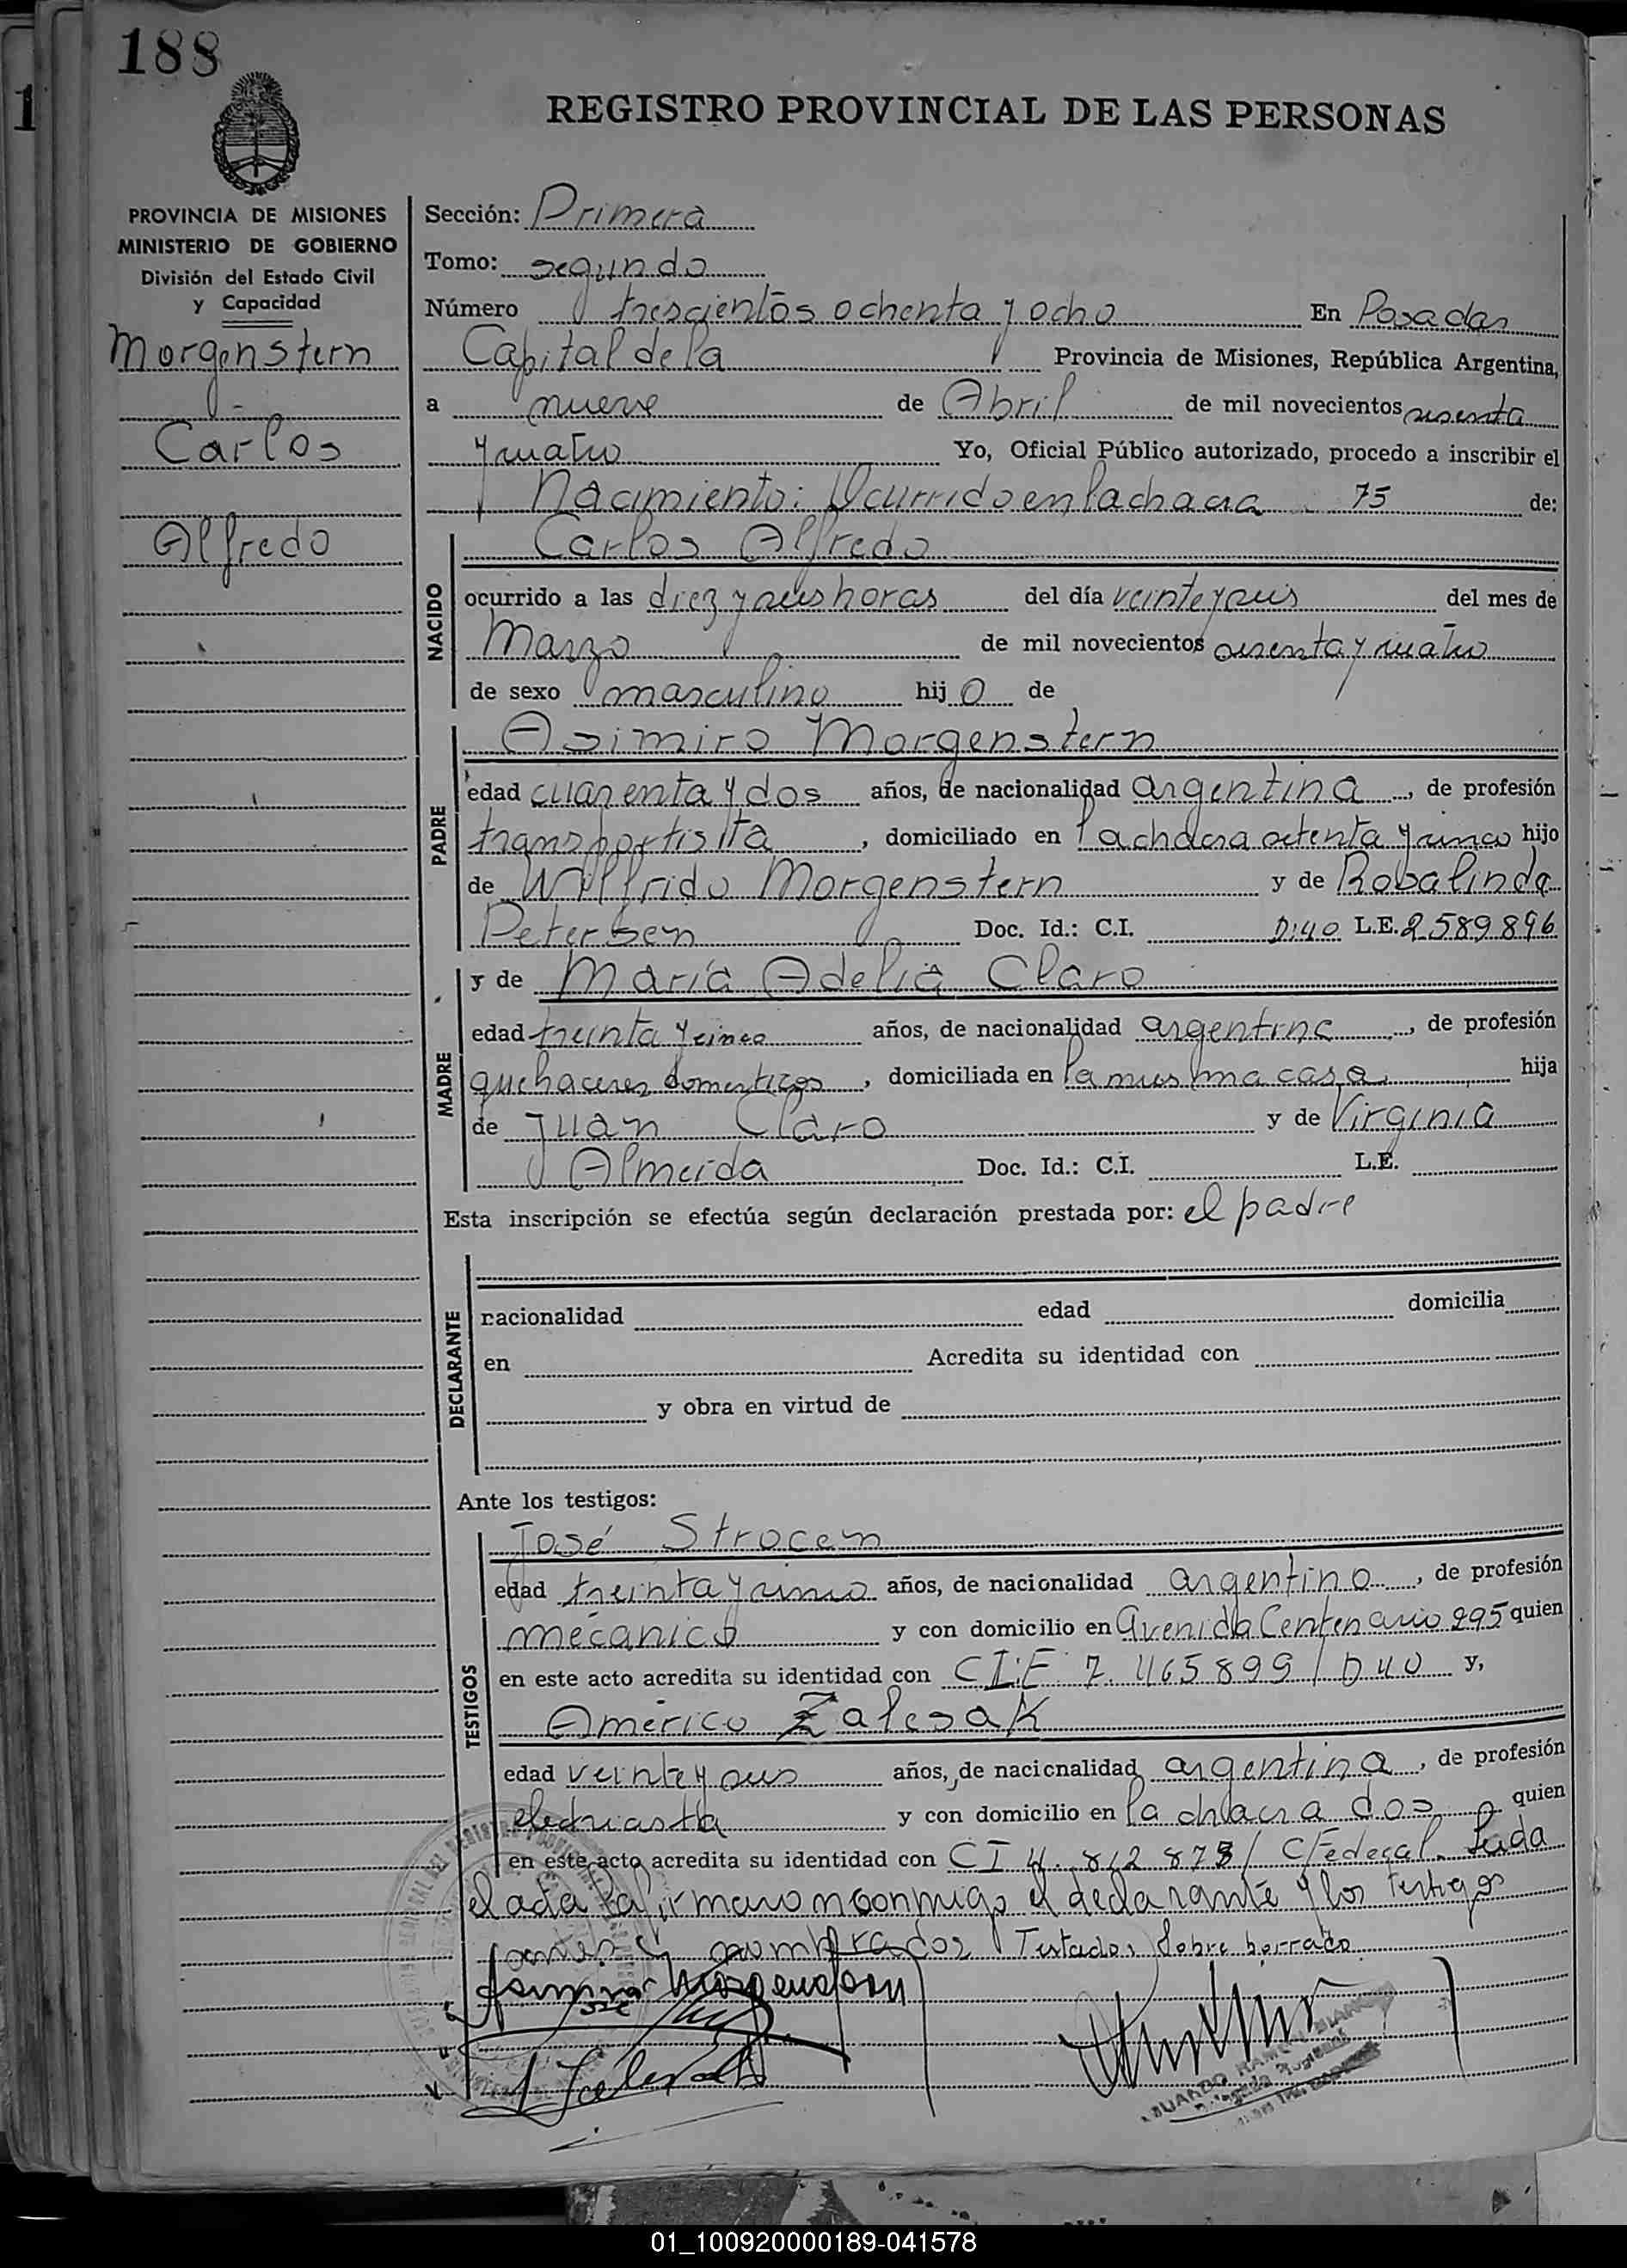 188
1
REGISTRO PROVINCIAL DE LAS PERSONAS
PROVINCIA DE MISIONES
MINISTERIO DE GOBIERNO
División del Estado Civil
y Capacidad
Morgenstern
Carlos
Alfredo
Sección: Primera
Tomo: segundo
Número trescientos ochenta y ocho En Posadas
Capital de la Provincia de Misiones, República Argentina,
a nueve de Abril de mil novecientos sesenta
y cuatro Yo, Oficial Público autorizado, procedo a inscribir el
Nacimiento: Ocurrido en la chacra 75 de:
Carlos Alfredo
NACIDO
ocurrido a las diez y seis horas del día veinte y seis del mes de
Marzo de mil novecientos sesenta y cuatro
de sexo masculino hijo de
PADRE
Asimiro Morgenstern
edad cuarenta y dos años, de nacionalidad argentina, de profesión
transportista, domiciliado en la chacra setenta y cinco hijo
de Wilfrido Morgenstern y de Rosalinda
Petersen Doc. Id.: C.I. D:40 L.E. 2589896
MADRE
y de María Adelia Claro
edad treinta y cinco años, de nacionalidad argentina, de profesión
quehaceres domesticos, domiciliada en la misma casa. hija
de Juan Claro y de Virginia
Almeida Doc. Id.: C.I. L.E.
Esta inscripción se efectúa según declaración prestada por: el padre
DECLARANTE
nacionalidad edad domicilia
en Acredita su identidad con
y obra en virtud de
Ante los testigos:
TESTIGOS
José Strocen
edad treinta y cinco años, de nacionalidad argentino, de profesión
mecánico y con domicilio en Avenida Centenario 295 quien
en este acto acredita su identidad con C.I.E 7.465899/D40 y,
Américo Zalesak
edad veinte y seis años, de nacionalidad argentina, de profesión
electricista y con domicilio en la chacra dos quien
en este acto acredita su identidad con CI 4.812878/C/Federal. Leida
el acta la firmaron conmigo el declarante y los testigos
nombrados Testado, Sobre borrado
Morgenstern
01_100920000189-041578